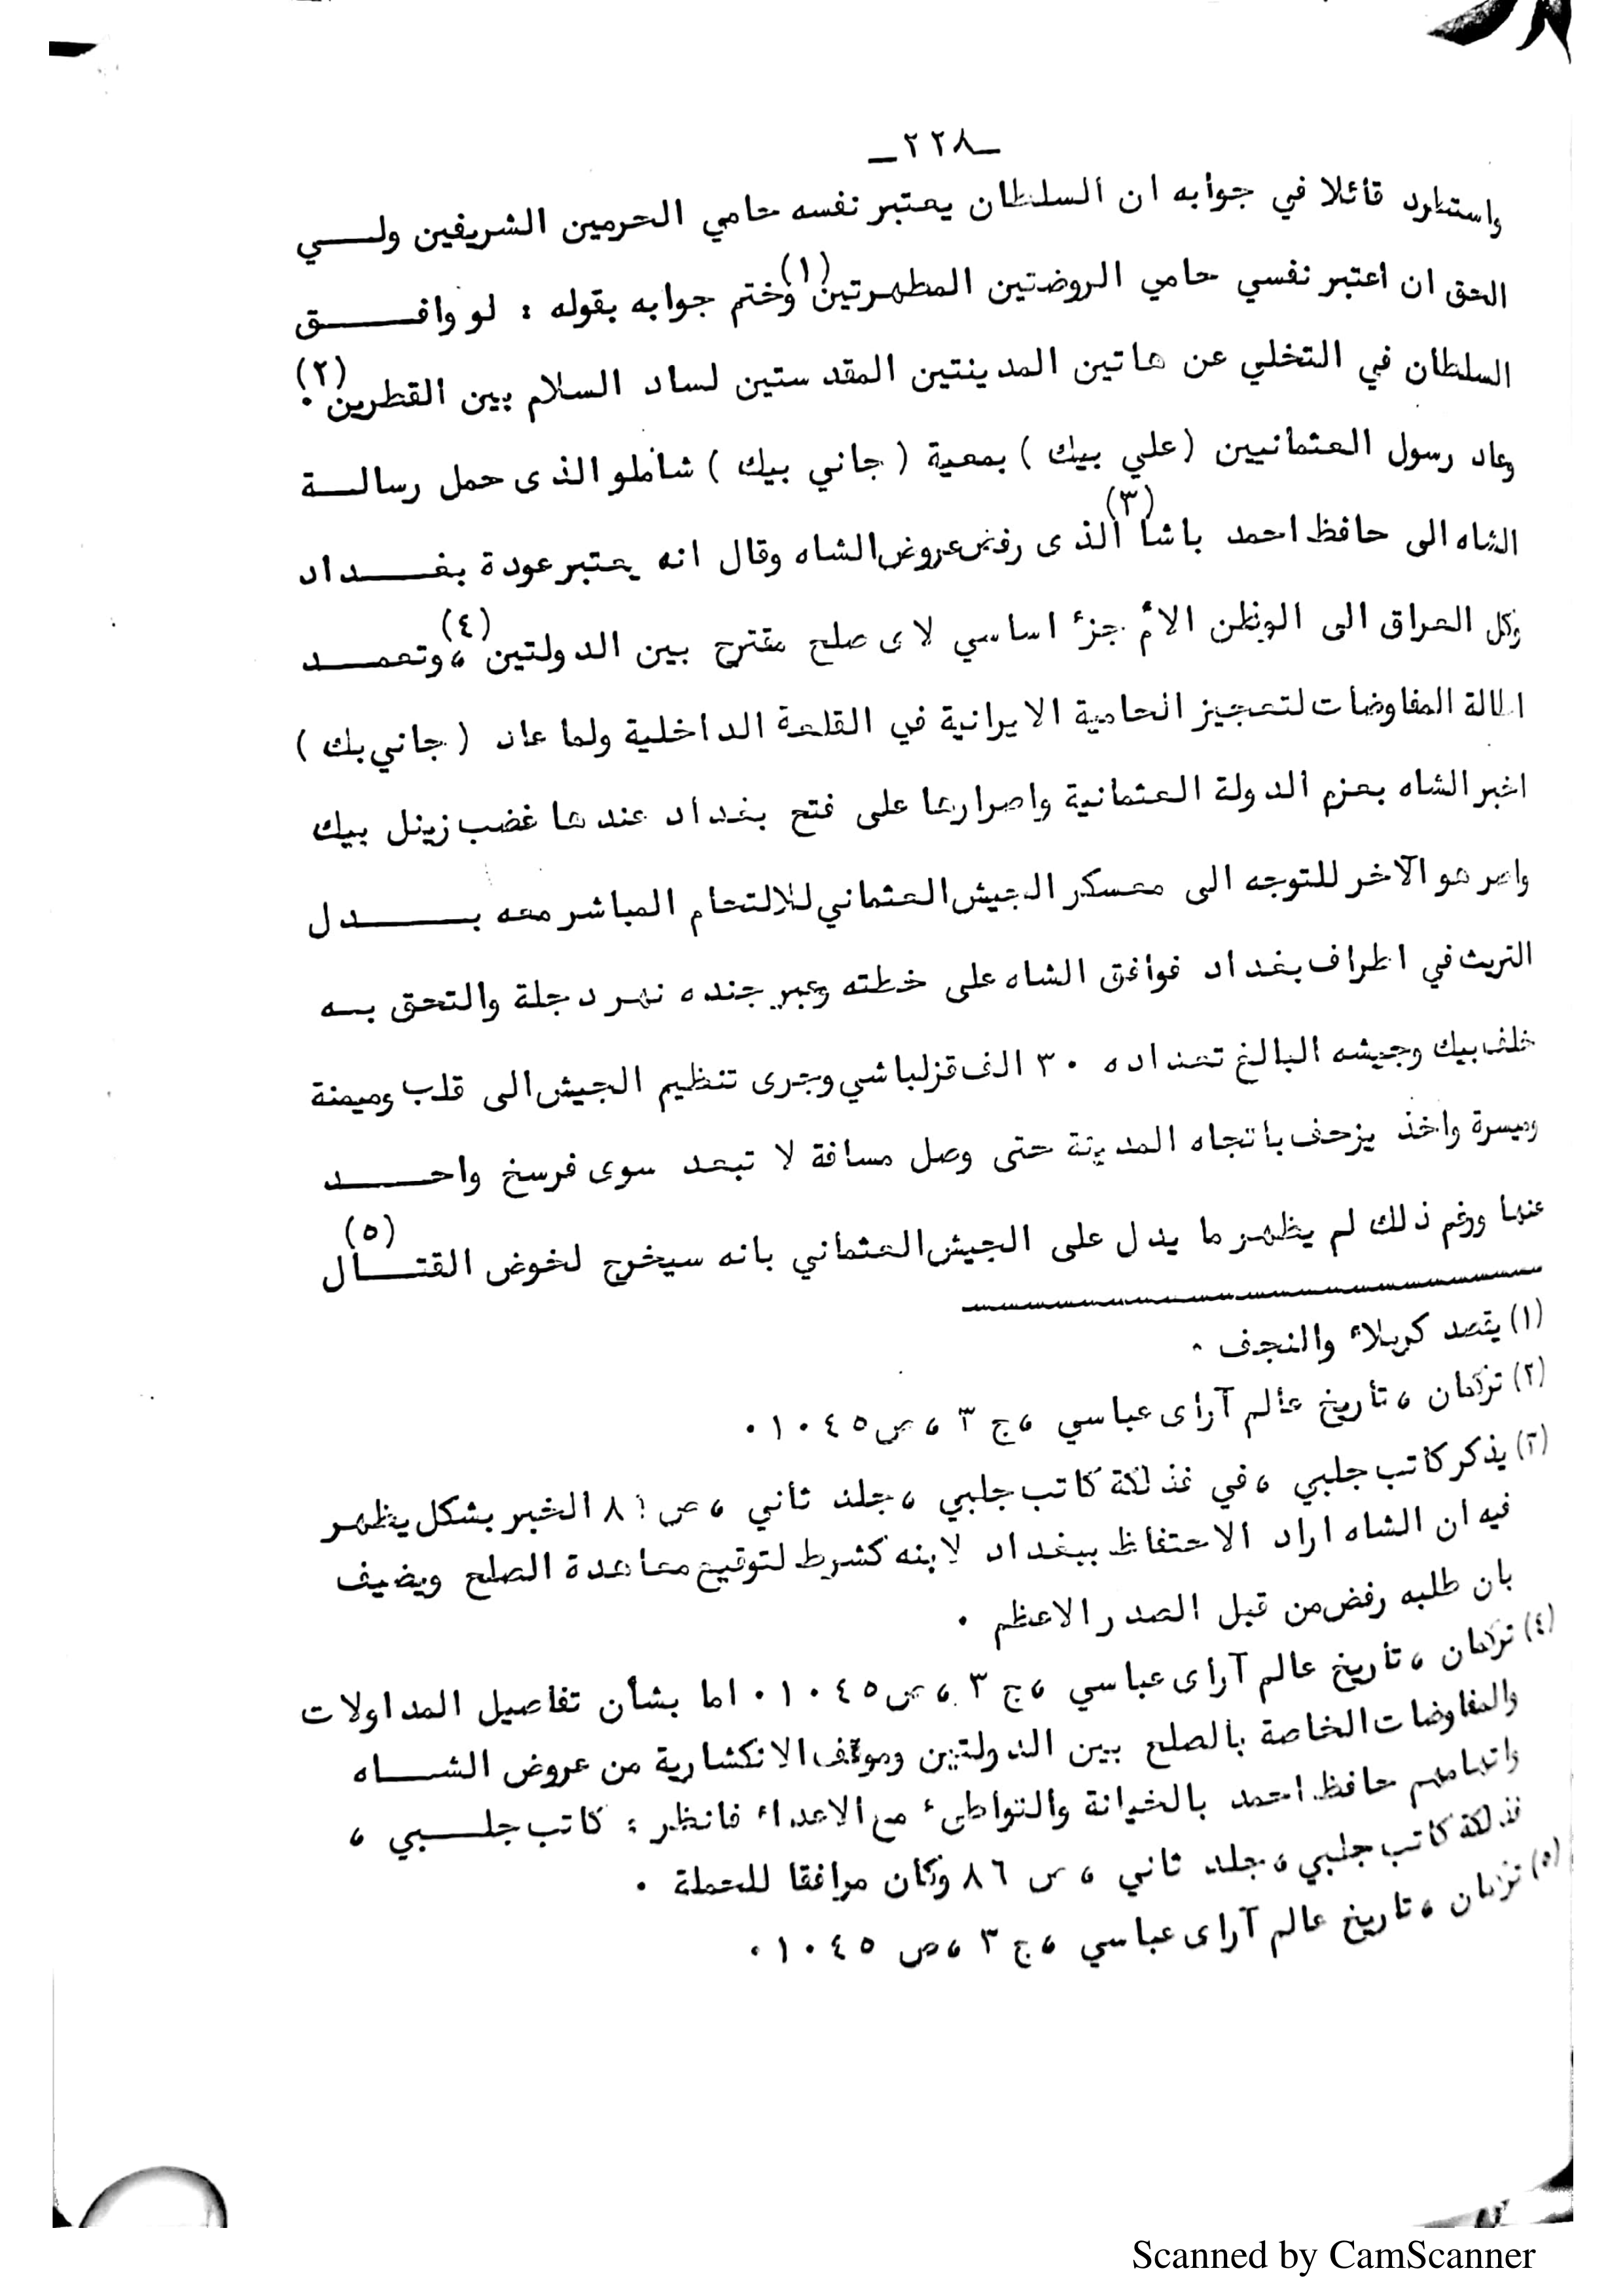 ـ٢٢٨ـ
واستطرد قائلا في جوابه ان السلطان يعتبر نفسه حامي الحرمين الشريفين ولي
الحق ان اعتبر نفسي حامي الروضتين المطهرتين(١) وختم جوابه بقوله : لو وافق
السلطان في التخلي عن هاتين المدينتين المقدستين لساد السلام بين القطرين(٢).
وعاد رسول العثمانيين (علي بيك) بمعية (جاني بيك) شاملو الذى حمل رسالة
الشاه الى حافظ احمد باشا(٣) الذى رفض عروض الشاه وقال انه يعتبر عودة بغداد
وكل العراق الى الوطن الام جزء اساسي لاى صلح مقترح بين الدولتين(٤)، وتعمد
اطالة المفاوضات لتعجيز الحامية الايرانية في القلعة الداخلية ولما عاد (جاني بك)
اخبر الشاه بعزم الدولة العثمانية واصرارها على فتح بغداد عندها غضب زينل بيك
واصر هو الآخر للتوجه الى معسكر الجيش العثماني للالتحام المباشر معه بدل
التريث في اطراف بغداد فوافق الشاه على خطته وعبر جنده نهر دجلة والتحق به
خلف بيك وجيشه البالغ تعداده ٣٠ الف قزلباشي وجرى تنظيم الجيش الى قلب وميمنة
وميسرة واخذ يزحف باتجاه المدينة حتى وصل مسافة لا تبعد سوى فرسخ واحد
عنها ورغم ذلك لم يظهر ما يدل على الجيش العثماني بانه سيخرج لخوض القتال(٥)
(١) يقصد كربلاء والنجف .
(٢) تركمان ، تأريخ عالم آراى عباسي ، ج ٣ ، ص ١٠٤٥ .
(٣) يذكر كاتب جلبي ، في فذلكة كاتب جلبي ، جلد ثاني ، ص ٨١ الخبر بشكل يظهر
فيه ان الشاه اراد الاحتفاظ ببغداد لابنه كشرط لتوقيع معاهدة الصلح ويضيف
بان طلبه رفض من قبل الصدر الاعظم .
(٤) تركمان ، تأريخ عالم آراى عباسي ، ج ٣ ، ص ١٠٤٥ . اما بشأن تفاصيل المداولات
والمفاوضات الخاصة بالصلح بين الدولتين وموقف الانكشارية من عروض الشاه
واتهامهم حافظ احمد بالخيانة والتواطىء مع الاعداء فانظر : كاتب جلبي ،
فذلكة كاتب جلبي ، جلد ثاني ، ص ٨٦ وكان مرافقا للحملة .
(٥) تركمان ، تاريخ عالم آراى عباسي ، ج ٣ ، ص ١٠٤٥ .
Scanned by CamScanner